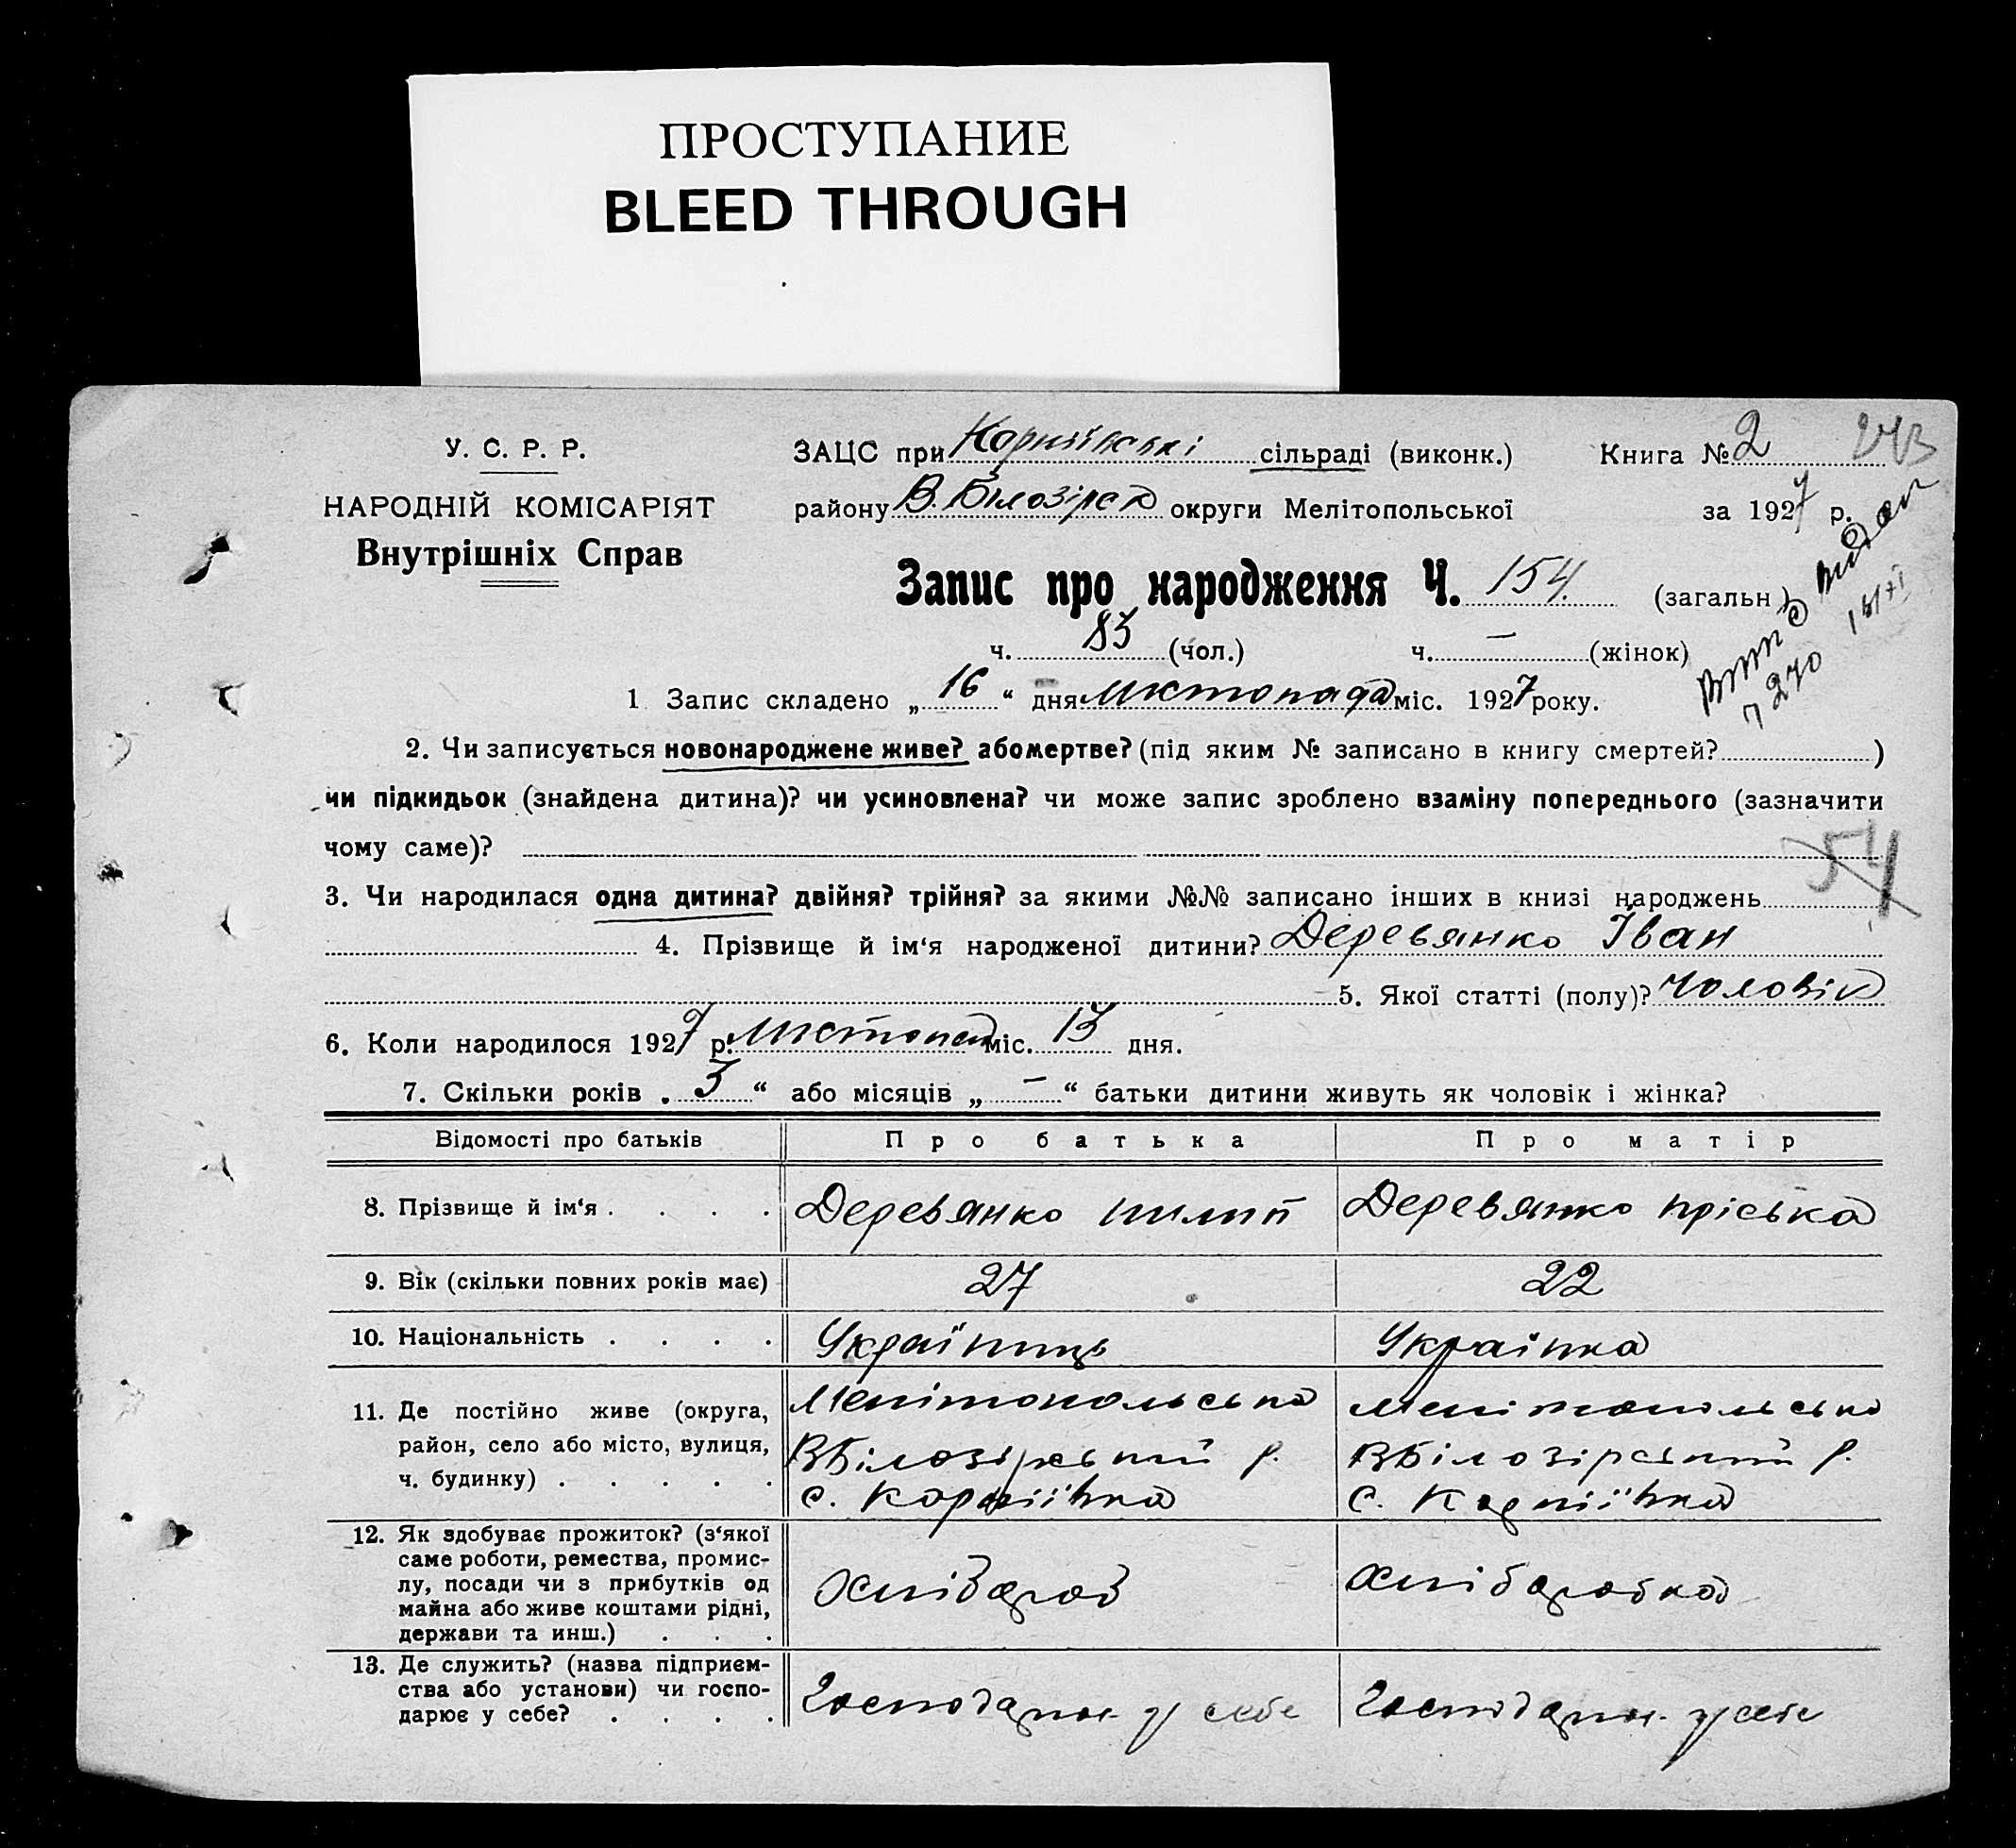 ПРОСТУПАНИЕ
BLEED THROUGH
У. С. Р. Р.
НАРОДНІЙ КОМІСАРІЯТ
Внутрішніх Справ
ЗАЦС при Корніївські сільраді (виконк.) Книга № 2 243
району В. Білозірск округи Мелітопольської за 1927 р.
Запис про народження Ч. 154. (загальн.)
ч. 83 (чол.) ч. — (жінок)
Видан
270
1 Запис складено „ 16 “ дня листопада міс. 1927 року.
2. Чи записується новонароджене живе? або мертве? (під яким № записано в книгу смертей? )
чи підкидьок (знайдена дитина)? чи усиновлена? чи може запис зроблено взаміну попереднього (зазначити
чому саме)?
54
3. Чи народилася одна дитина? двійня? трійня? за якими №№ записано інших в книзі народжень
4. Прізвище й ім‘я народженої дитини? Деревянко Іван
5. Якої статті (полу)? Чоловік
6. Коли народилося 1927 р. листопад міс. 13 дня.
7. Скільки років „ 3 “ або місяців „ — “ батьки дитини живуть як чоловік і жінка?
Відомості про батьків Про батька Про матір
8. Прізвище й ім‘я . . . . Деревянко Пилип Деревянко Пріська
9. Вік (скільки повних років має) 27 22
10. Національність . . . . Українць Українка
11. Де постійно живе (округа, Мелітопольська Мелітопольська
район, село або місто, вулиця, ВБілозірський р. ВБілозірський р.
ч. будинку) . . . . . с. Корніївка с. Корніївка
12. Як здобуває прожиток? (з‘якої
саме роботи, ремества, промис-
лу, посади чи з прибутків од Хлібороб Хліборобка
майна або живе коштами рідні,
держави та инш.) . . .
13. Де служить? (назва підприєм-
ства або установи) чи госпо- Господарює у себе Господарює у себе
дарює у себе? . . . .